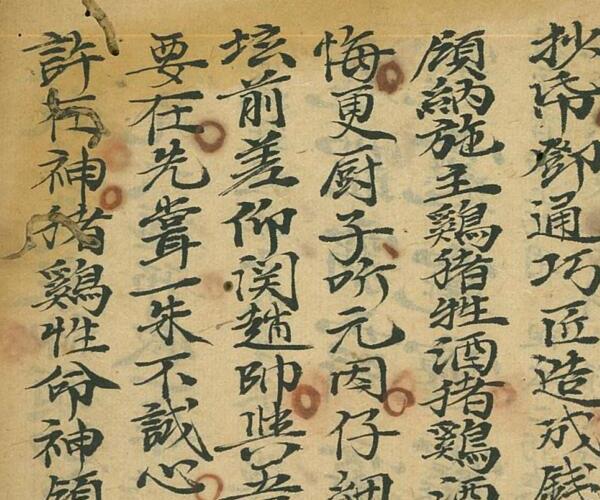 抄帋鄧通巧匠造成錢
頋納施主鷄猪牲酒猪鷄酒
悔更厨子听元因仔細
坛前差仰関趙帥與吾
要在先聋一朱不誠心
許神猪鷄性命神領